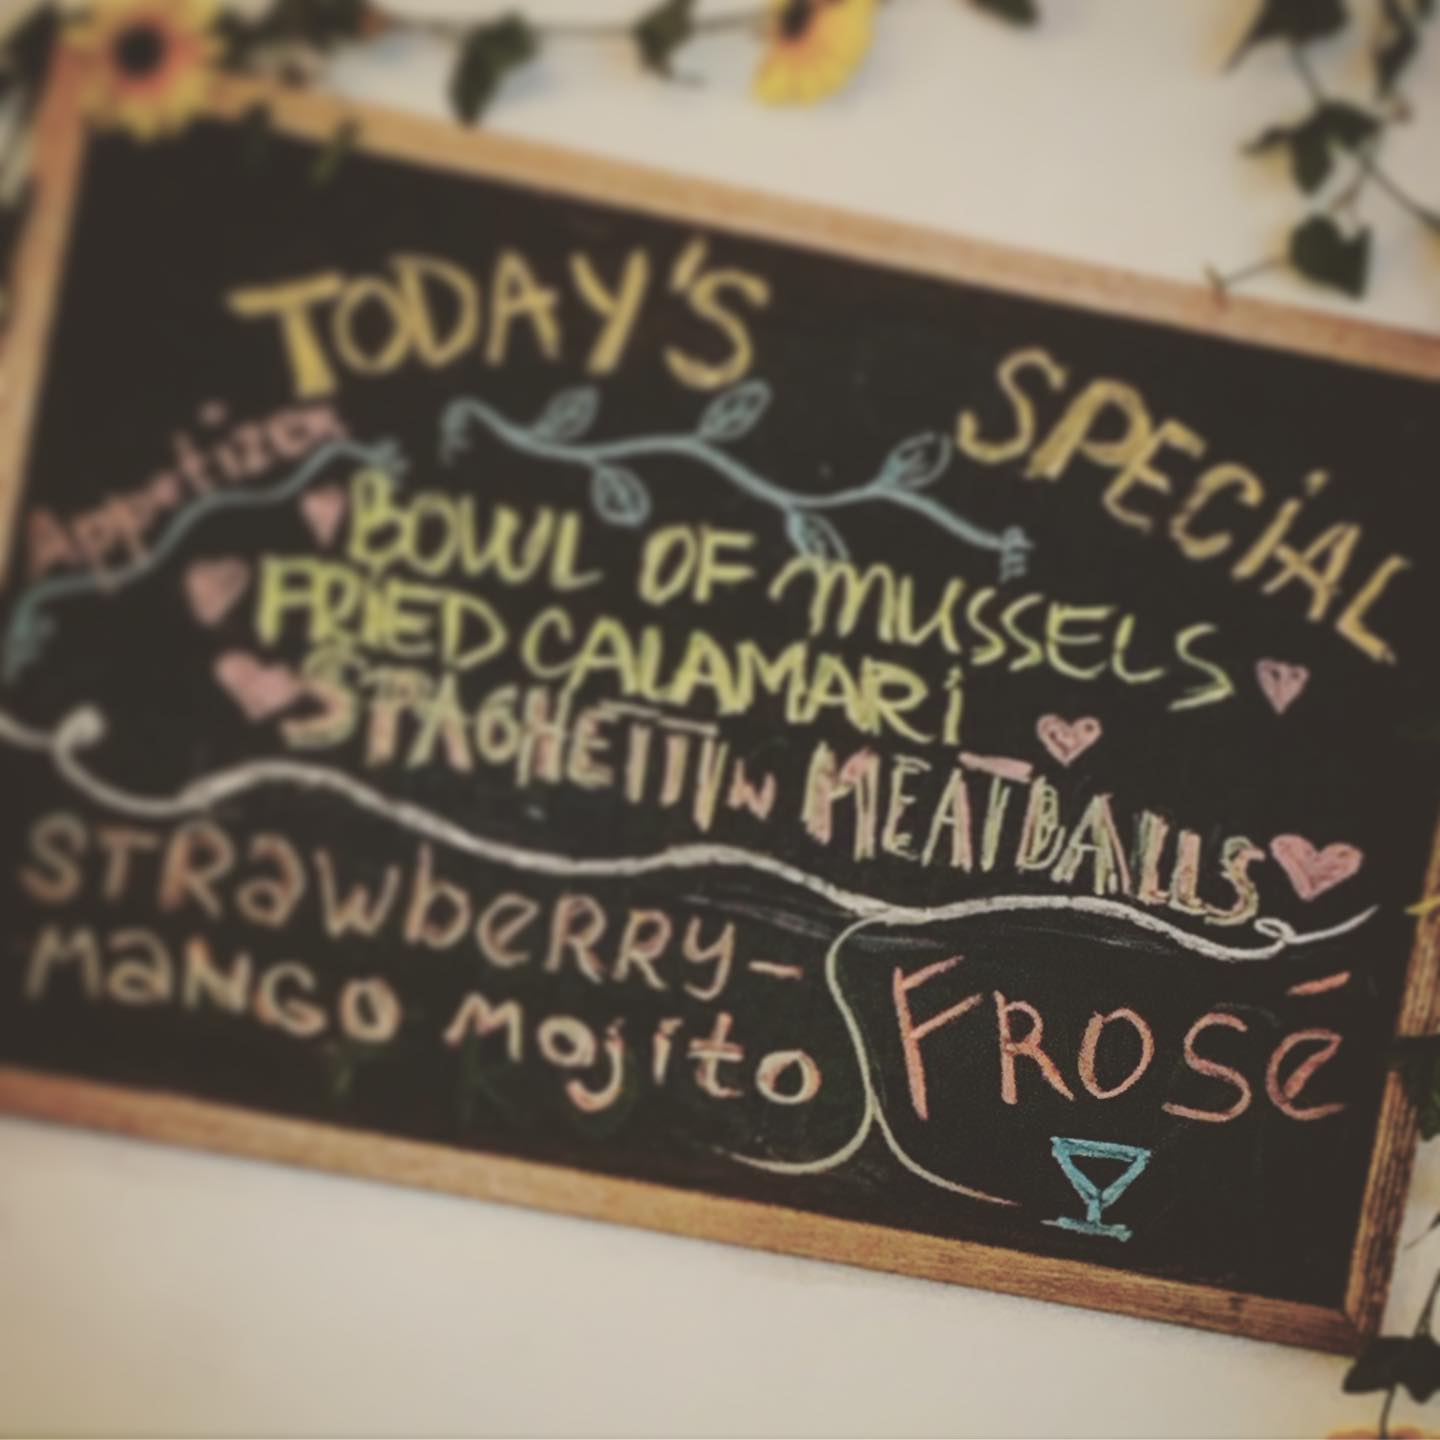 TODAY'S SPECiAL
Appetizer
BOWL OF MUSSELS
FRiED CALAMARi
SPAGHETTI w MEATBALLS
STRawbeRRy-
MaNGO Mojito
FROSé